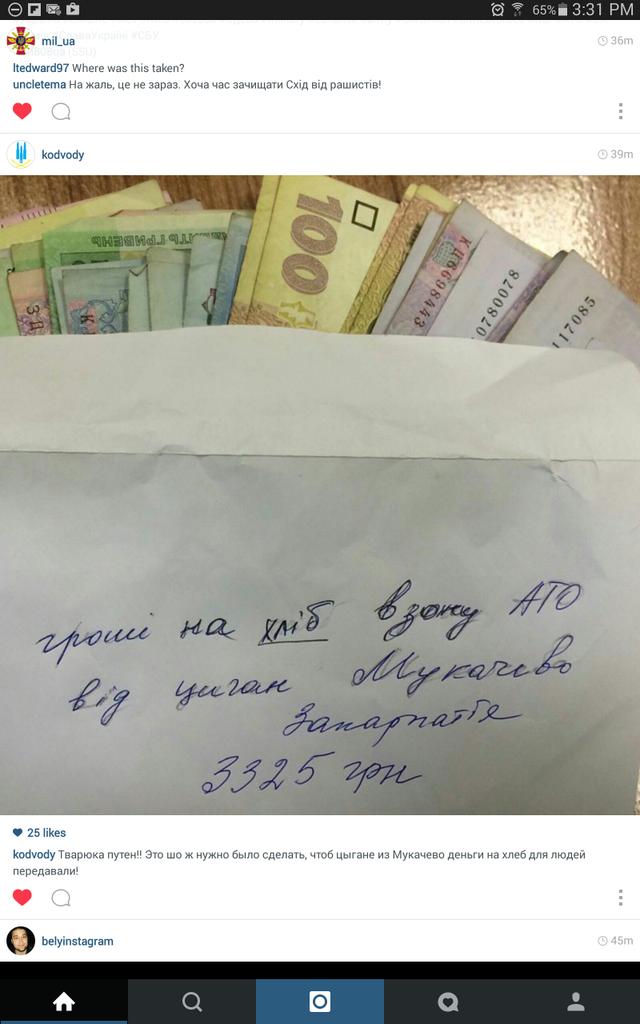 65% 3:31 PM
mil_ua 36m
ltedward97 Where was this taken?
uncletema На жаль, це не зараз. Хоча час зачищати Схід від рашистів!
kodvody 39m
100
КД8698443
0780078
117085
гроші на хліб в зону АТО
від циган Мукачево
Закарпаття
3325 грн
25 likes
kodvody Тварюка путен!! Это шо ж нужно было сделать, чтоб цыгане из Мукачево деньги на хлеб для людей
передавали!
belyinstagram 45m